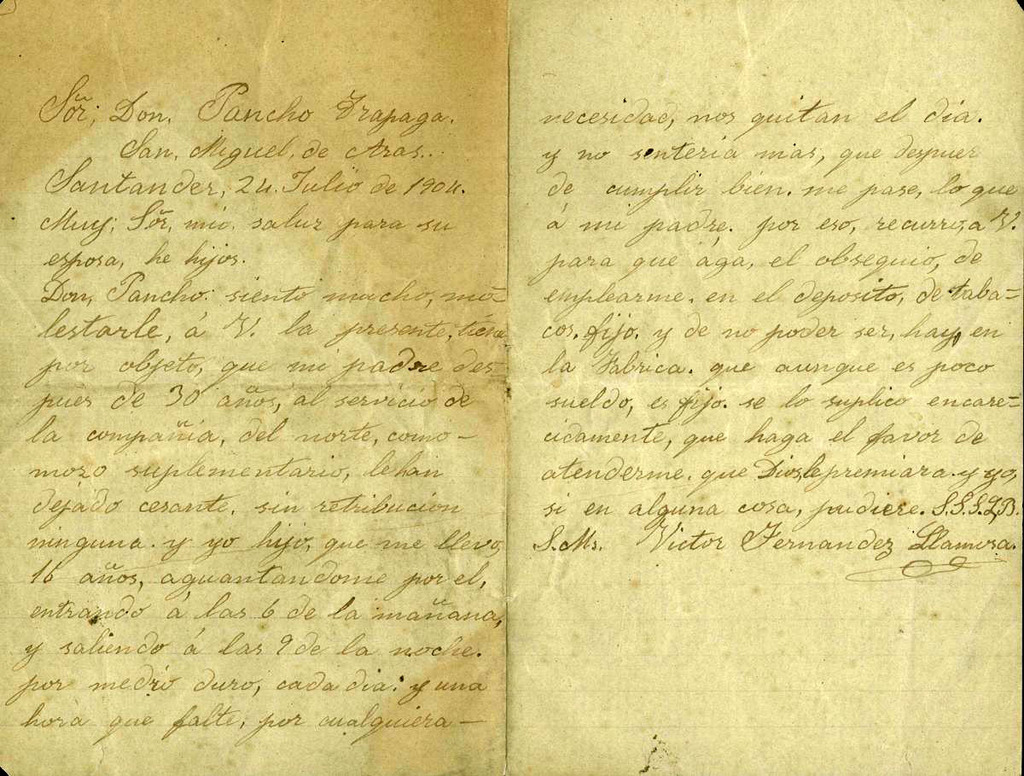 Sõr; Don, Pancho Trapaga.
San, Miguel, de Aras..
Santander, 24. Julio de 1904.
Muy; Sõr, mio. saluz para su
esposa, he hijos.
Don, Pancho: siento mucho, mo=
lestarle, á V. la presente, tiene
por objeto, que mi padre des
pues de 30 años, al servicio de
la compañia, del norte, como -
mozo suplementario, le han
dejado cesante, sin retribucion
ninguna. y yo hijo, que me llevo,
16 años, aguantandome por el,
entrando á las 6 de la mañana,
y saliendo á las 9 de la noche.
por medio duro, cada dia: y una
hora que falte, por cualquiera -
necesidad, nos quitan el dia.
y no senteria mas, que despuer
de cumplir bien. me pase, lo que
á mi padre. por eso, recurro, a V.
para que aga, el obsequio, de
emplearme. en el deposito, de taba=
cos, fijo. y de no poder ser, hay, en
la Fabrica. que aunque es poco
sueldo, es fijo. se lo suplico encare=
cidamente, que haga el favor de
atenderme. que Dios, le premiara. y yo,
si en alguna cosa, pudiere. S.S.S.Q.B.
S.Ms. Victor Fernandez Llamosa.